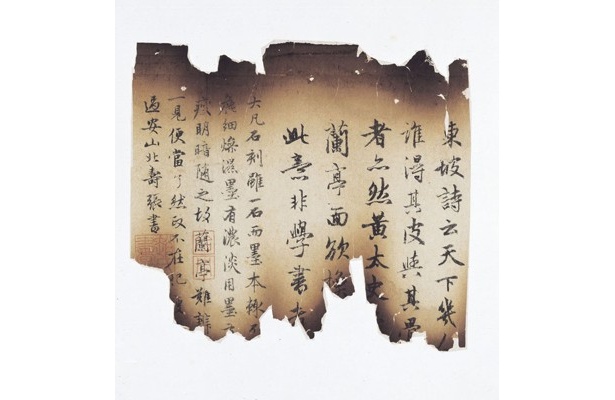 東坡詩云天下幾人
誰得其皮與其骨
者亦然黃太史
蘭亭面欲換
此意非學書者
大凡石刻雖一石而墨本輒不
麤細燥濕墨有濃淡用墨
瘦明暗隨之故蘭亭難辨
一見便當了然政不在肥
過安山北壽張書